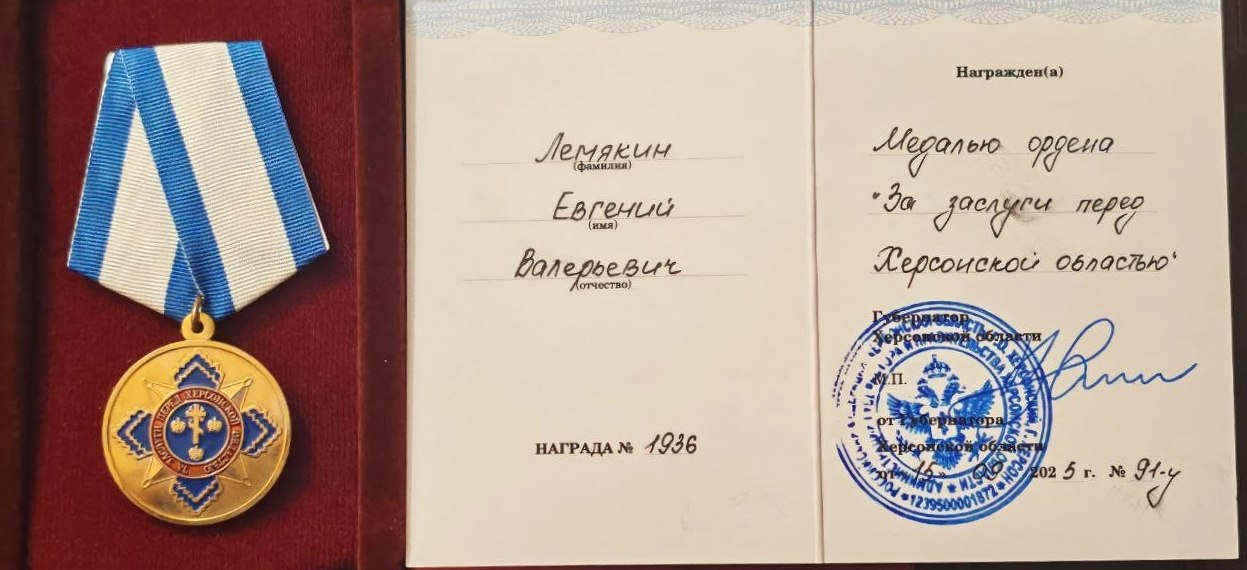 ЗА ЗАСЛУГИ ПЕРЕД ХЕРСОНСКОЙ ОБЛАСТЬЮ
Лемякин
(фамилия)
Евгений
(имя)
Валерьевич
(отчество)
НАГРАДА № 1936
Награжден(а)
Медалью ордена
"За заслуги перед
Херсонской областью"
Губернатор
Херсонской области
М.П.
от Губернатора
Херсонской области
15 2025 г. № 91-у
1239500001872